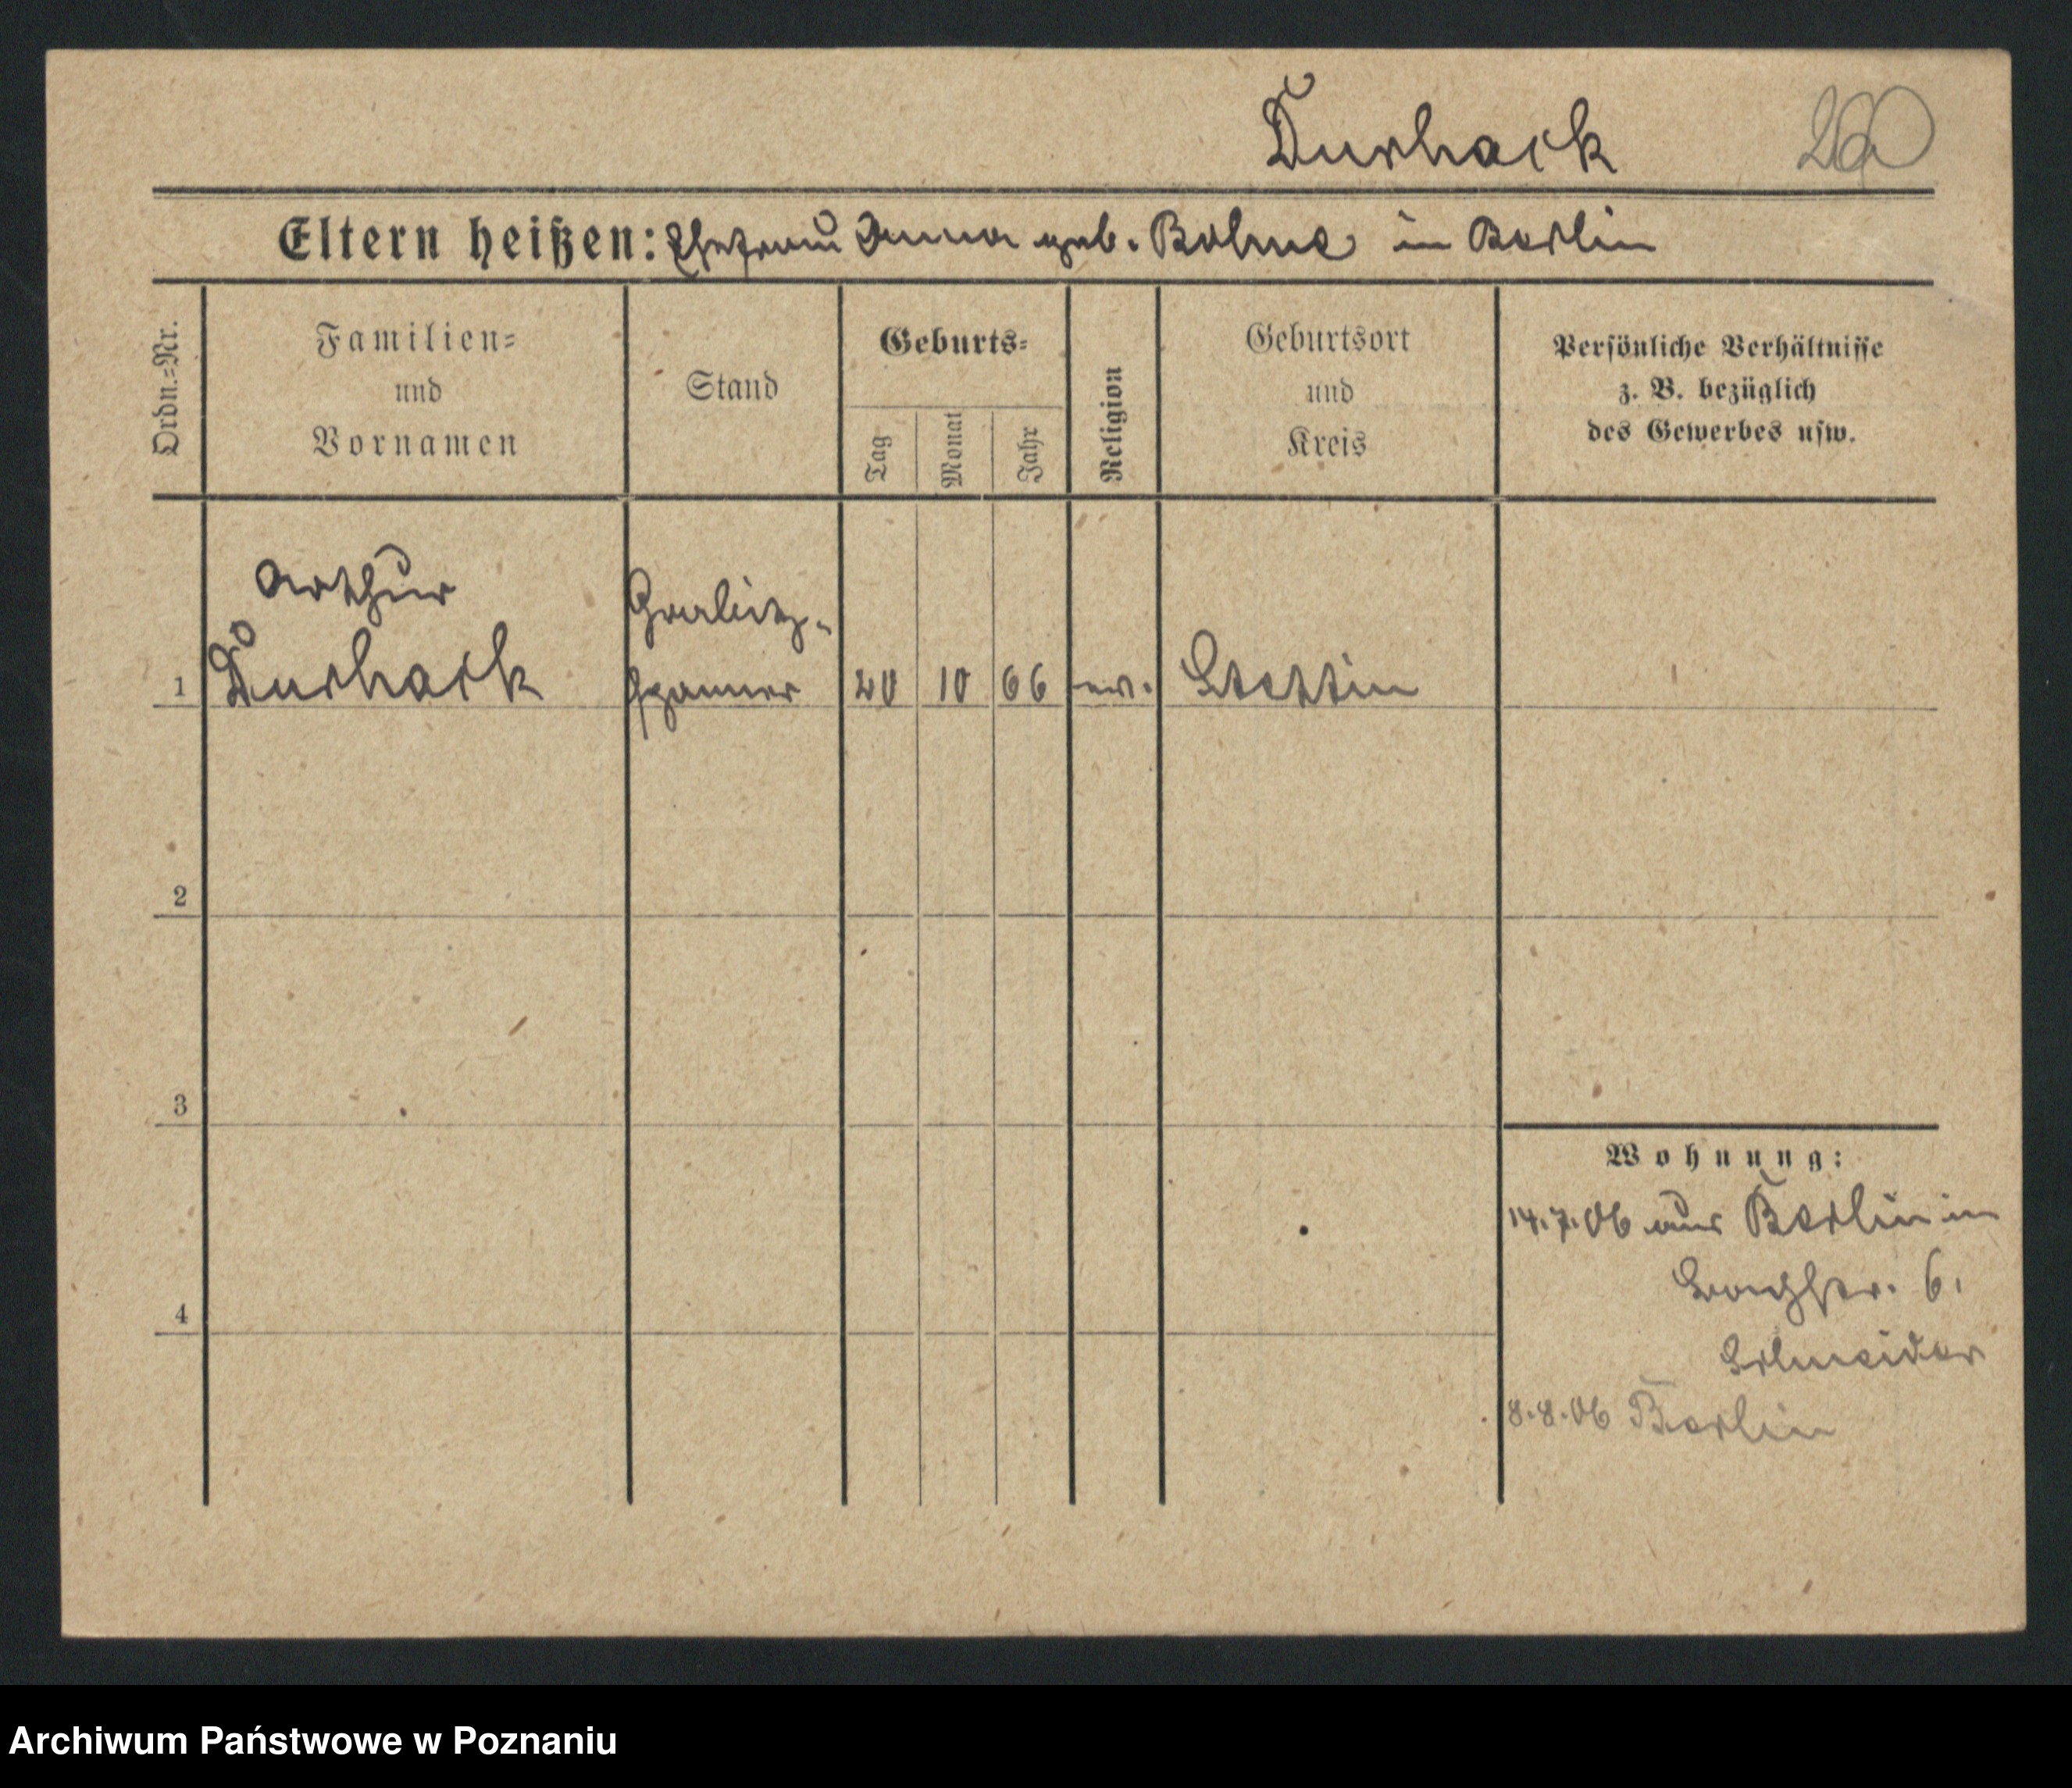 Durhack 260
Eltern heißen: Ehefrau Anna geb. Bohne in Berlin
Ordn.=Nr.
Familien=
und
Vornamen
Stand
Geburts=
Tag
Monat
Jahr
Religion
Geburtsort
und
Kreis
Persönliche Verhältnisse
z. B. bezüglich
des Gewerbes usw.
Arthur
1 Durhack 20 10 66 ev. Stettin
2
3
4
Wohnung:
14.7.06 aus Berlin in
6.
Schneider
8.8.06 Berlin
Archiwum Państwowe w Poznaniu